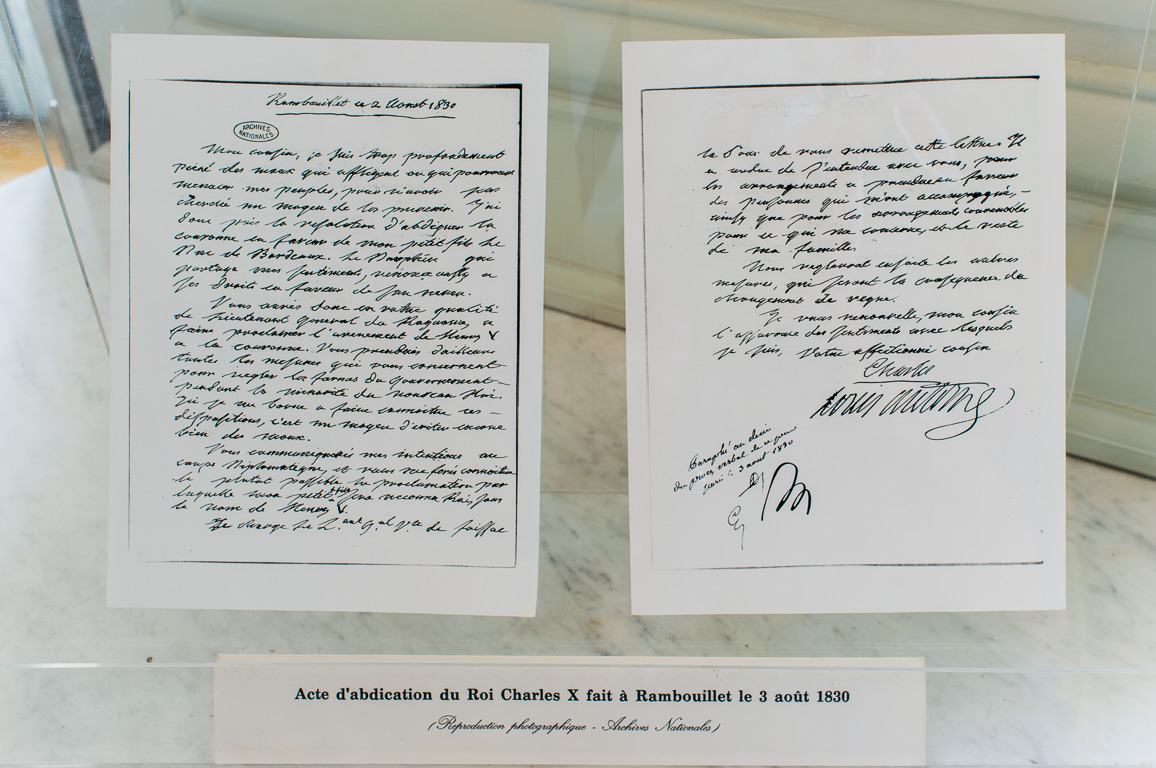 Rambouillet ce 2 Aoust 1830
ARCHIVES
NATIONALES
Mon cousin, je suis trop profondément
peiné des maux qui affligent ou qui pourroient
menacer mes peuples, pour n'avoir pas
cherché un moyen de les prevenir. J'ai
donc pris la résolution d'abdiquer la
couronne en faveur de mon petit fils le
Duc de Bordeaux. Le Dauphin qui
partage mes sentiments, renonce aussy a
ses droits en faveur de son neveu.
Vous aurés donc en votre qualité
de Lieutenant General du Royaume, a
faire proclamer l'avenement de Henry V
a la couronne. Vous prendrés d'ailleurs
toutes les mesures qui vous concernent
pour regler les formes du Gouvernement
pendant la minorité du nouveau Roi.
Ici je me borne a faire connoitre ces
dispositions, c'est un moyen d'eviter encore
bien des maux.
Vous communiquerés mes intentions au
corps Diplomatique, et vous me ferés connoitre
le plutot possible la proclamation par
laquelle mon petit fils sera reconnu Roi, sous
le nom de Henry V.
Je charge le L.ant G.al V.te de Foissac
la Tour de vous remettre cette lettre. Il
a ordre de s'entendre avec vous, pour
les arrangements a prendre en faveur
des personnes qui m'ont accompagné,
ainsy que pour les arrangements convenables
pour ce qui me concerne, et le reste
de ma famille.
Nous reglerons ensuite les autres
mesures, qui seront la consequence du
changement de regne.
Je vous renouvelle, mon cousin
l'assurance des sentiments avec lesquels
je suis, Votre affectionné cousin
Charles
Louis Antoine
Paraphé au desir
du procès verbal de ce jour
3 aout 1830
Acte d'abdication du Roi Charles X fait à Rambouillet le 3 août 1830
(Reproduction photographique - Archives Nationales)